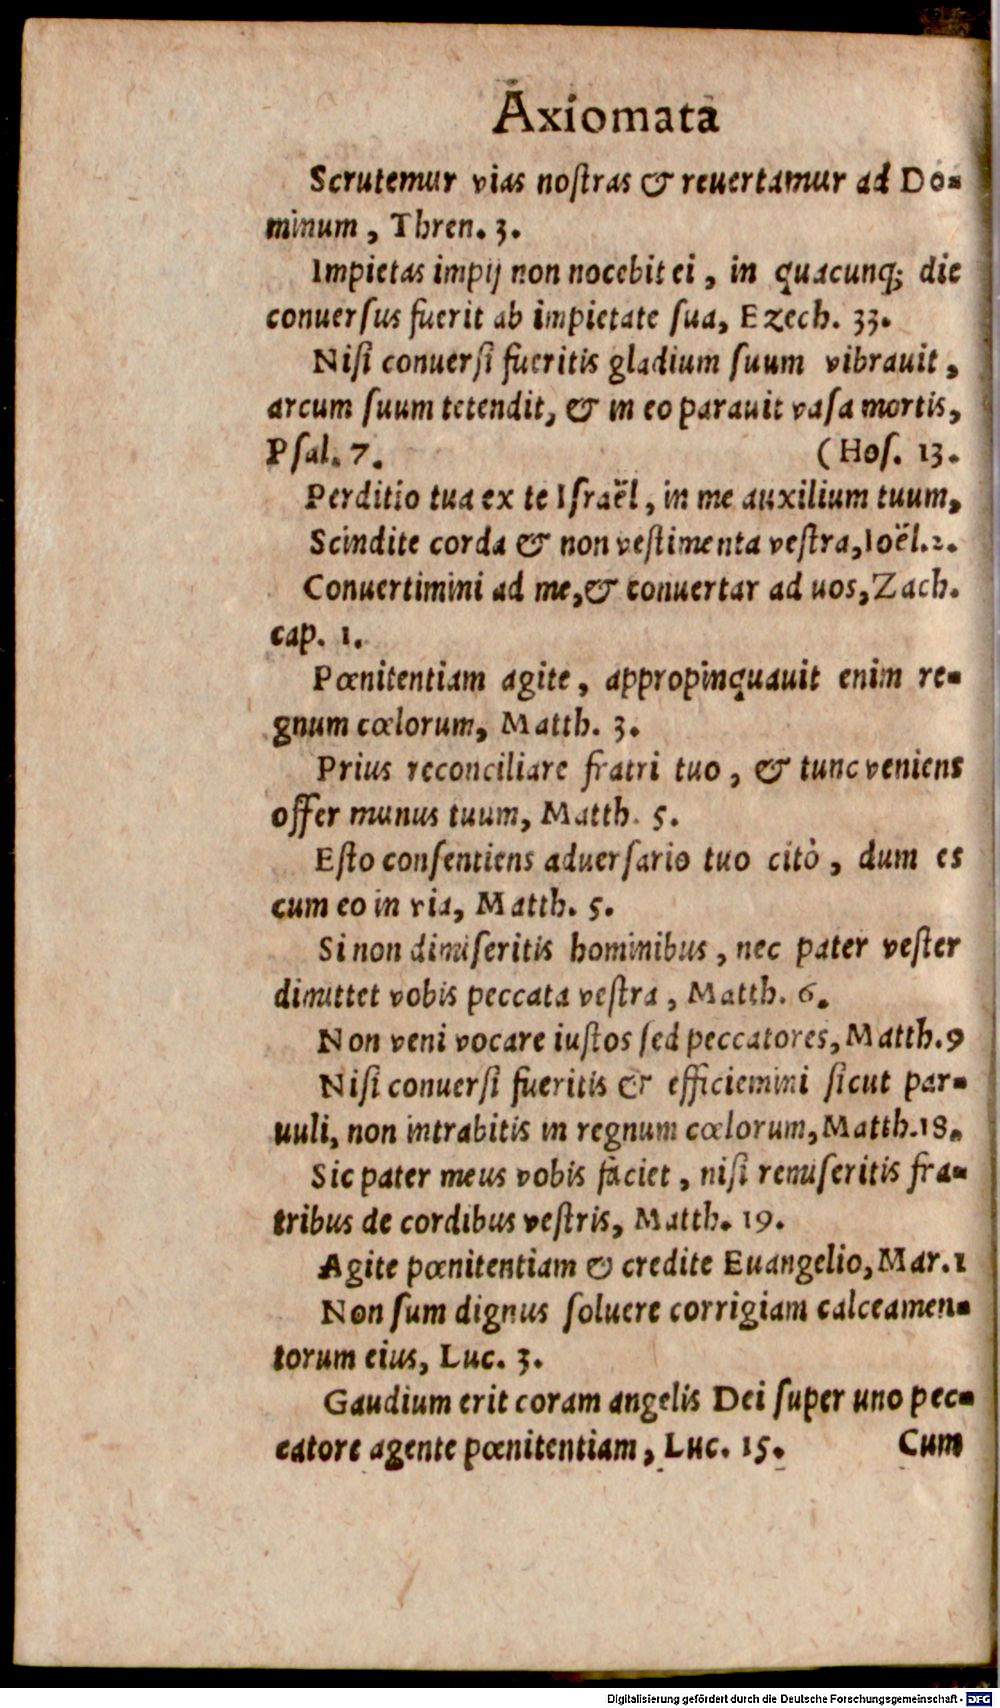 Axiomata
Scrutemur vias noſtras & reuertamur ad Do-
minum, Thren. 3.
Impietas impij non nocebit ei, in quacunq; die
conuerſus fuerit ab impietate ſua, Ezech. 33.
Niſi conuerſi fueritis gladium ſuum vibrauit,
arcum ſuum tetendit, & in eo parauit vaſa mortis,
Pſal. 7. (Hoſ. 13.
Perditio tua ex te Iſraël, in me auxilium tuum,
Scindite corda & non veſtimenta veſtra, Ioël. 2.
Conuertimini ad me, & conuertar ad uos, Zach.
cap. 1.
Pœnitentiam agite, appropinquauit enim re-
gnum cœlorum, Matth. 3.
Prius reconciliare fratri tuo, & tunc veniens
offer munus tuum, Matth. 5.
Eſto conſentiens aduerſario tuo citò, dum es
cum eo in via, Matth. 5.
Si non dimiſeritis hominibus, nec pater veſter
dimittet vobis peccata veſtra, Matth. 6.
Non veni vocare iuſtos ſed peccatores, Matth. 9
Niſi conuerſi fueritis & efficiemini ſicut par-
uuli, non intrabitis in regnum cœlorum, Matth. 18.
Sic pater meus vobis faciet, niſi remiſeritis fra-
tribus de cordibus veſtris, Matth. 19.
Agite pœnitentiam & credite Euangelio, Mar. 1
Non ſum dignus ſoluere corrigiam calceamen-
torum eius, Luc. 3.
Gaudium erit coram angelis Dei ſuper uno pec-
catore agente pœnitentiam, Luc. 15. Cum
Digitalisierung gefördert durch die Deutsche Forschungsgemeinschaft - DFG